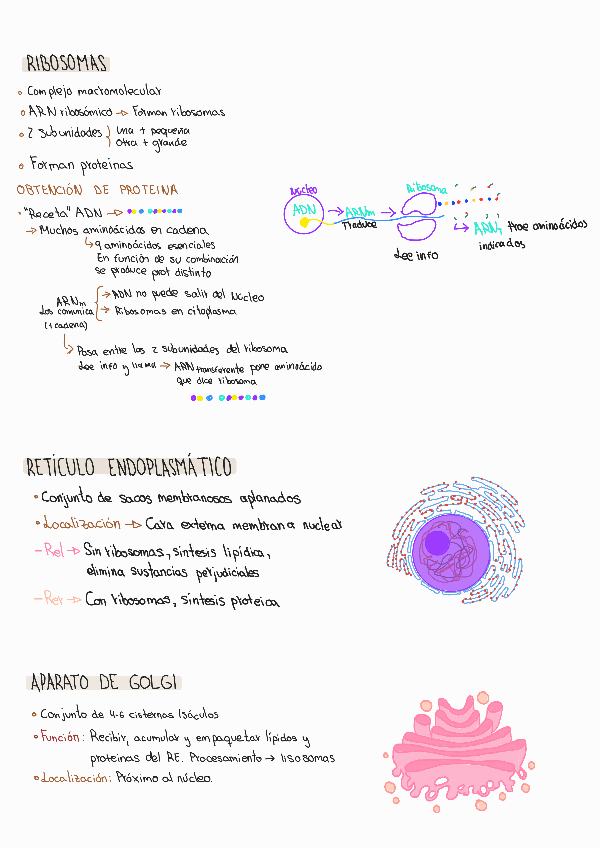 RIBOSOMAS
• Complejo macromolecular
• ARN ribosómico → Forman ribosomas
• 2 subunidades } Una + pequeña
Otra + grande
• Forman proteínas
OBTENCIÓN DE PROTEINA
• "Receta" ADN →
→ Muchos aminoácidos en cadena
↳ 9 aminoácidos esenciales
En función de su combinación
se produce prot distinto
ARNm
Los comunica
(+ cadena)
{ → ADN no puede salir del núcleo
→ Ribosomas en citoplasma
↳ Pasa entre las 2 subunidades del ribosoma
Lee info y llama → ARN transferente pone aminoácido
que dice ribosoma
Núcleo
ADN → ARNm →
Traduce
Ribosoma
Lee info
↳ ARNt trae aminoácidos
indicados
RETÍCULO ENDOPLASMÁTICO
• Conjunto de sacos membranosos aplanados
• Localización → Cara externa membrana nuclear
- Rel → Sin ribosomas, síntesis lipídica,
elimina sustancias perjudiciales
- Rer → Con ribosomas, síntesis proteica
APARATO DE GOLGI
• Conjunto de 4-6 cisternas /sáculos
• Función: Recibir, acumular y empaquetar lípidos y
proteinas del RE. Procesamiento → lisosomas
• Localización: Próximo al núcleo.